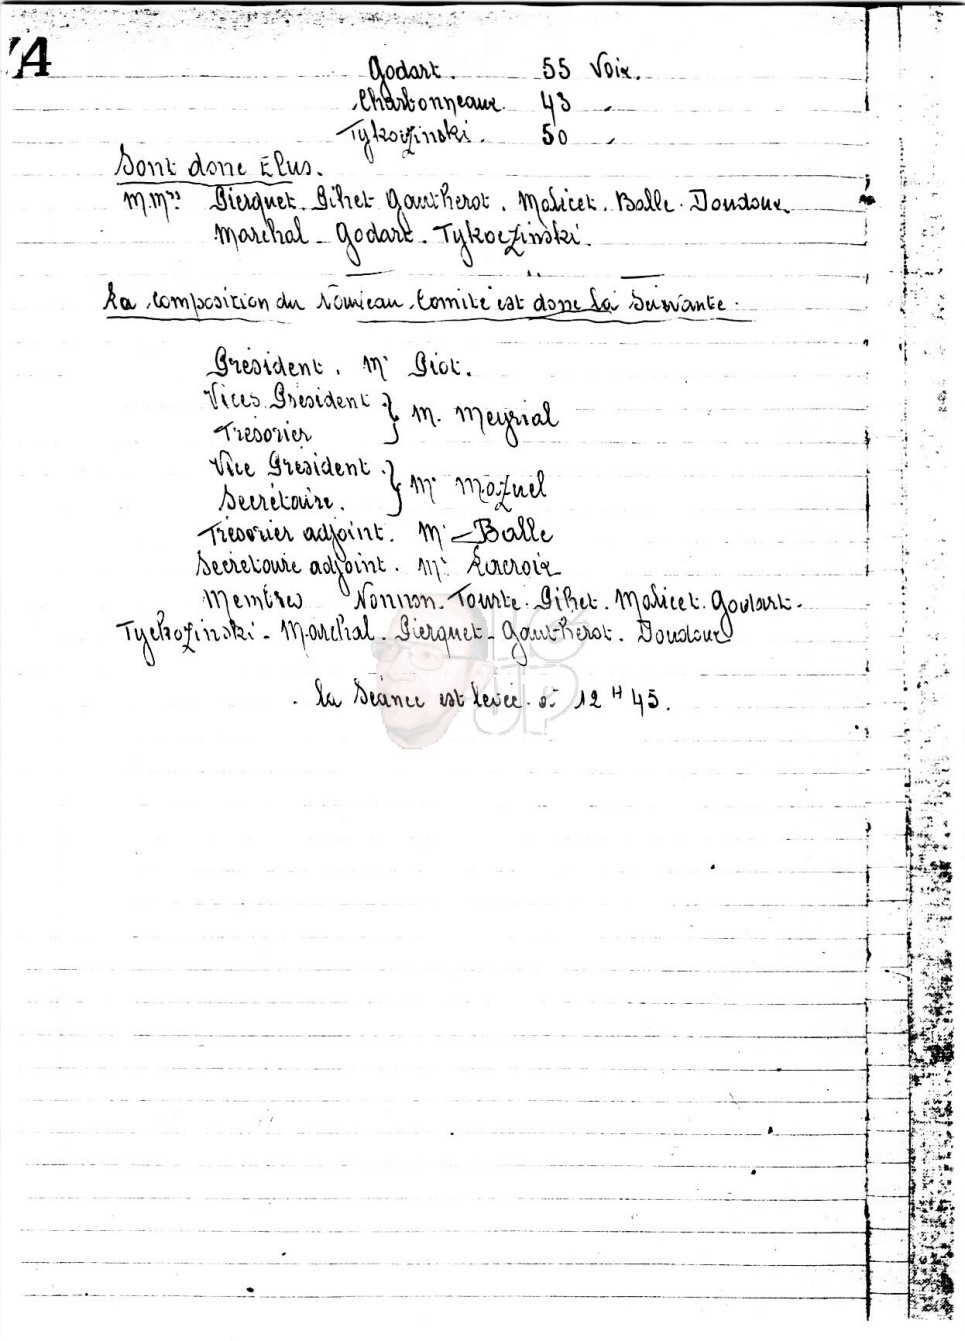 A
Godart. 55 Voix.
Charbonneaux. 43 "
Tykoczinski. 50 "
Sont donc Élus.
M.Mrs Pierquet. Pihet. Gautherot. Malicet. Balle. Doudoux.
Marchal - Godart. Tykoczinski.
La composition du Nouveau Comité est donc la Suivante :
Président. Mr Piot.
Vices Président } M. Meyrial
Trésorier
Vice Président } Mr Mozuel
Secrétaire.
Trésorier adjoint. Mr Balle
Secrétaire adjoint. Mr Lacroix
Membres Nonnon. Tourte. Pihet. Malicet. Godart.
Tyckozinski - Marchal. Pierquet - Gautherot. Doudoux
La Séance est levée à 12 H 45.
UP